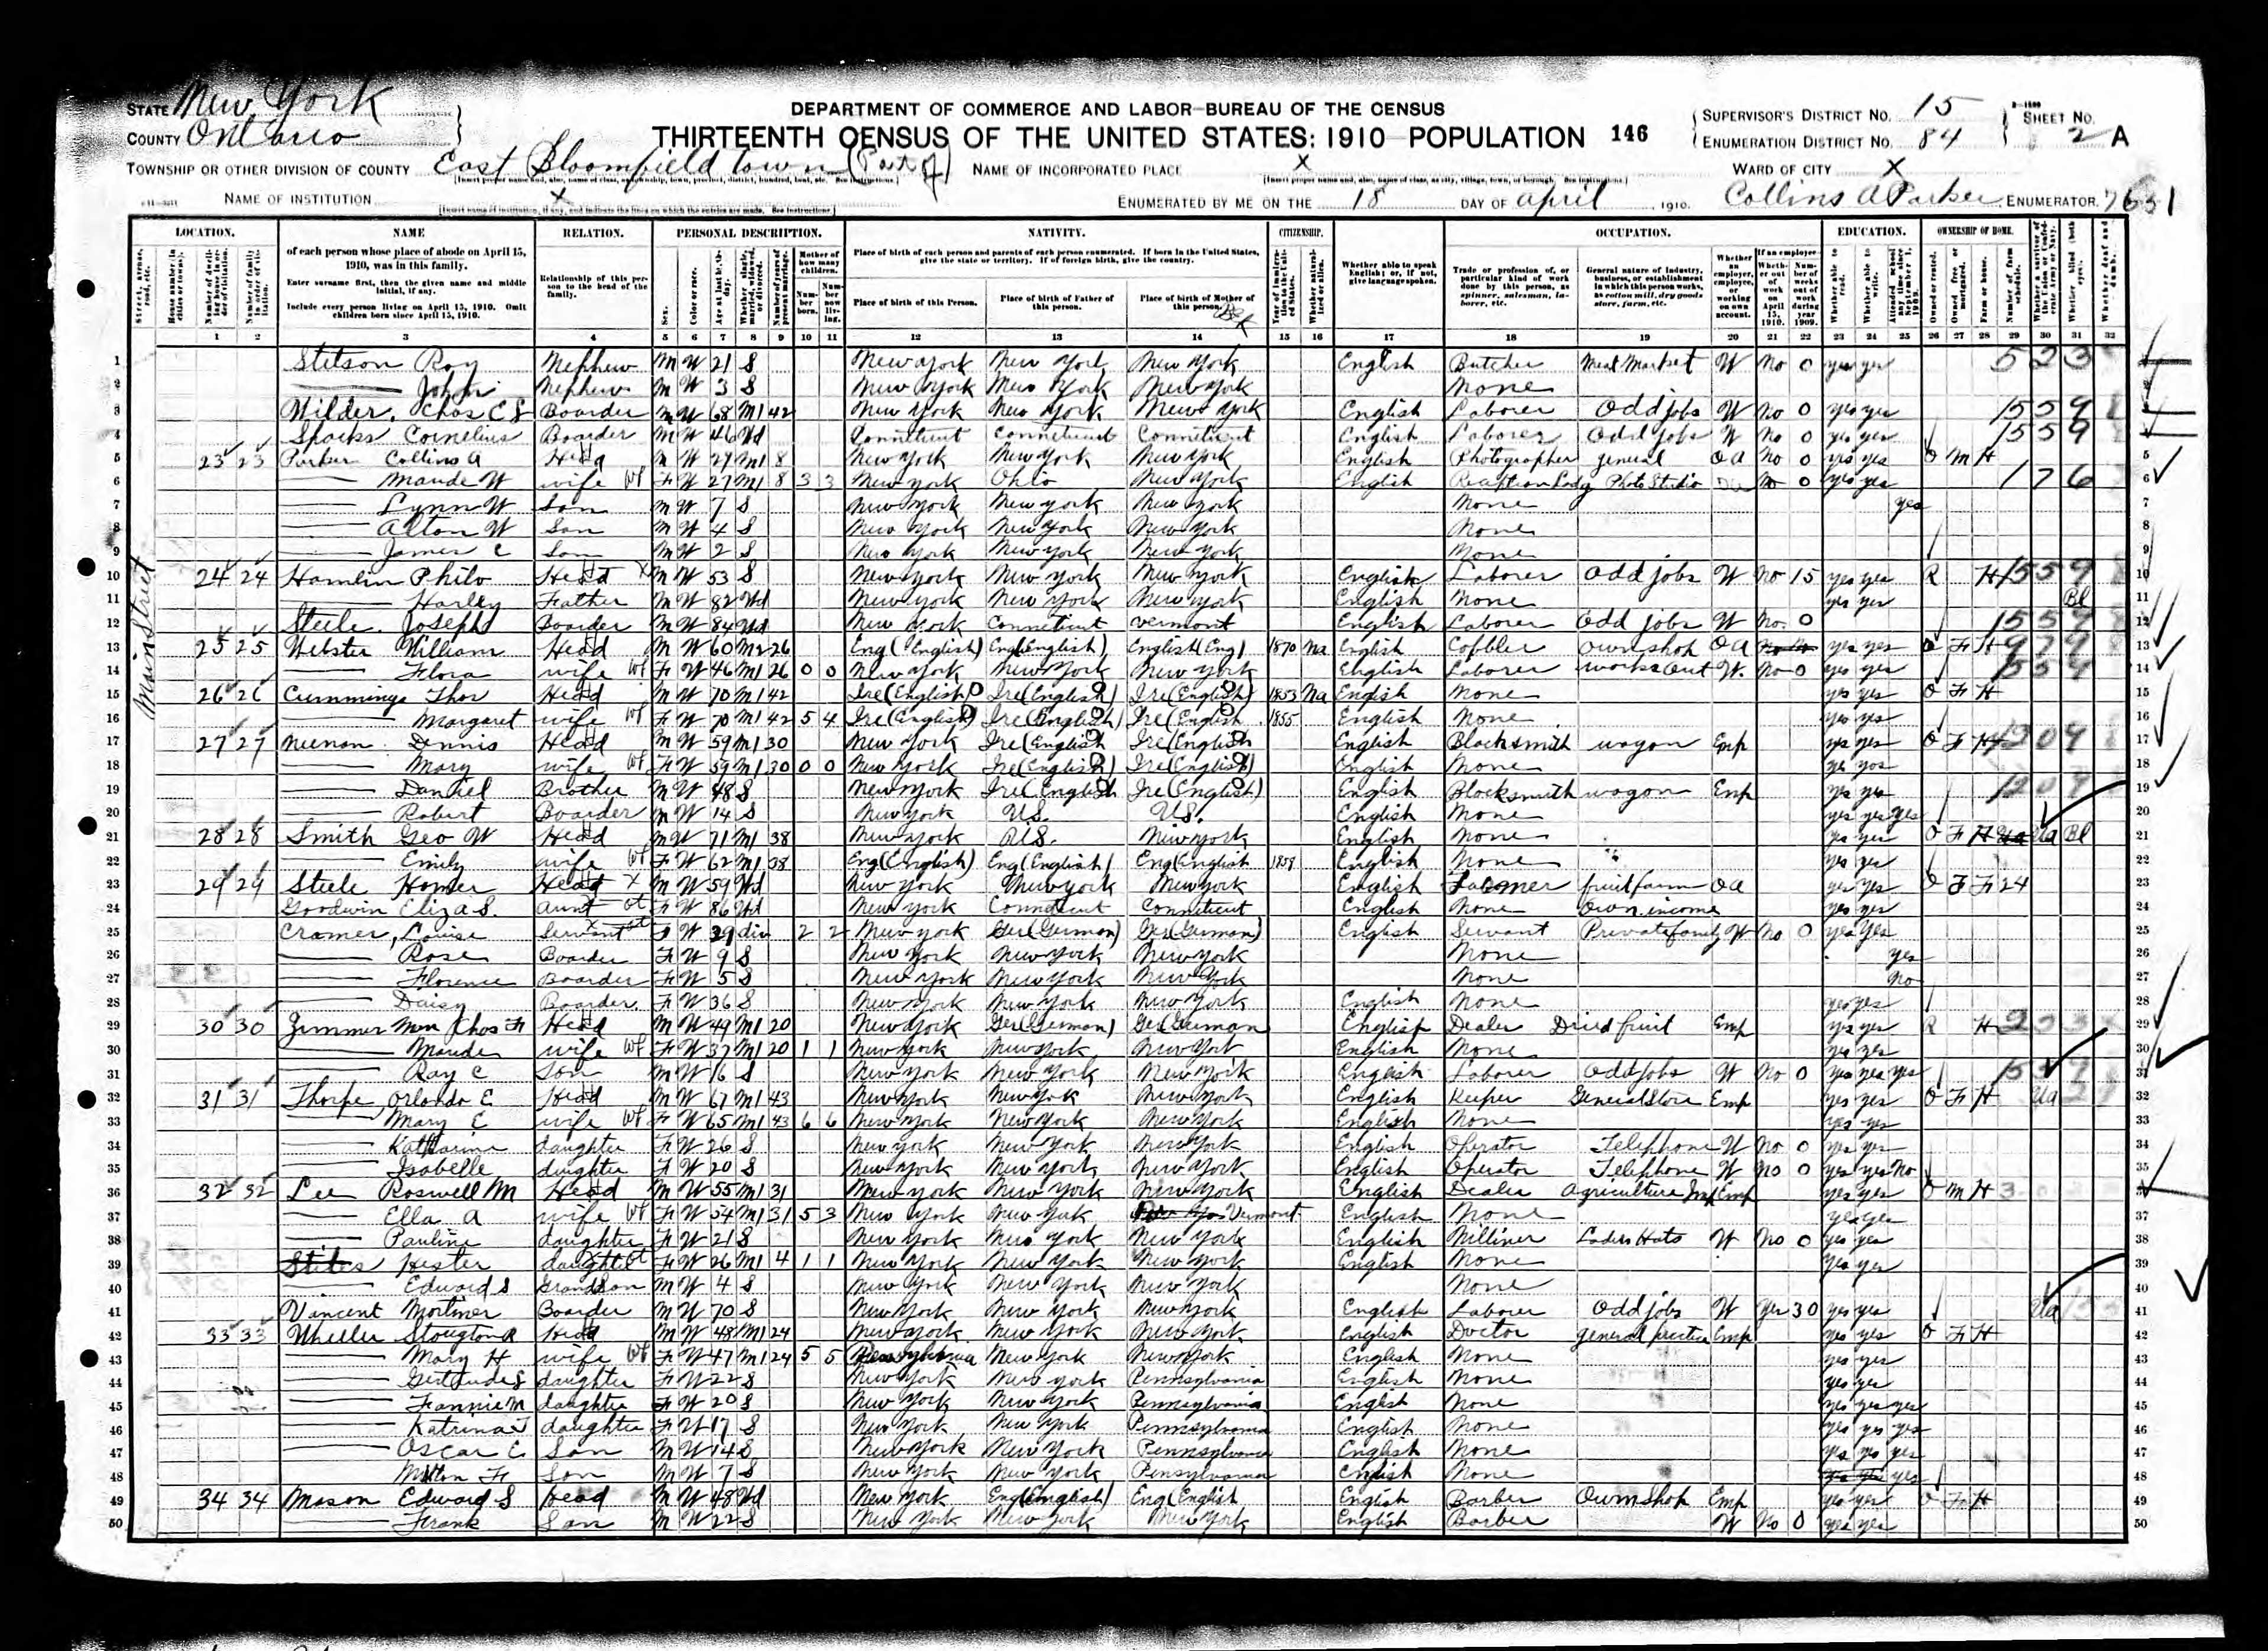 STATE New York
COUNTY Ontario
DEPARTMENT OF COMMERCE AND LABOR—BUREAU OF THE CENSUS
THIRTEENTH CENSUS OF THE UNITED STATES: 1910—POPULATION 146
SUPERVISOR'S DISTRICT NO. 15
ENUMERATION DISTRICT NO. 84
SHEET NO. 2 A
TOWNSHIP OR OTHER DIVISION OF COUNTY East Bloomfield town (Part of)
NAME OF INCORPORATED PLACE X
WARD OF CITY X
NAME OF INSTITUTION X
ENUMERATED BY ME ON THE 18 DAY OF april, 1910. Collins A Parker, ENUMERATOR. 7631
LOCATION. NAME RELATION. PERSONAL DESCRIPTION. NATIVITY. CITIZENSHIP. OCCUPATION. EDUCATION. OWNERSHIP OF HOME.
of each person whose place of abode on April 15, 1910, was in this family.
Enter surname first, then the given name and middle initial, if any.
Include every person living on April 15, 1910. Omit children born since April 15, 1910.
Relationship of this person to the head of the family.
Place of birth of each person and parents of each person enumerated. If born in the United States, give the state or territory. If of foreign birth, give the country.
Place of birth of this Person. Place of birth of Father of this person. Place of birth of Mother of this person.
Whether able to speak English; or, if not, give language spoken.
Trade or profession of, or particular kind of work done by this person, as spinner, salesman, laborer, etc.
General nature of industry, business, or establishment in which this person works, as cotton mill, dry goods store, farm, etc.
1 2 3 4 5 6 7 8 9 10 11 12 13 14 15 16 17 18 19 20 21 22 23 24 25 26 27 28 29 30 31 32
Main Street
1 Stetson Roy Nephew M W 21 S New York New York New York English Butcher Meat Market W No 0 yes yes 523
2 —— John Nephew M W 3 S New York New York New York None
3 Wilder, Chas C S Boarder M W 68 M1 42 New York New York New York English Laborer Odd jobs W No 0 yes yes 1559
4 Sparks Cornelius Boarder M W 46 Wd Conneticut Conneticut Conneticut English Laborer Odd jobs W No 0 yes yes 1559
5 23 23 Parker Collins A Head M W 29 M1 8 New York New York New York English Photographer general OA No 0 yes yes O M H
6 —— Maude W wife F W 27 M1 8 3 3 New York Ohio New York English Reception Lady Photo Studio No 0 yes yes 176
7 —— Lynn W Son M W 7 S New York New York New York None yes
8 —— Alton W Son M W 4 S New York New York New York None
9 —— James C Son M W 2 S New York New York New York None
10 24 24 Hamlin Philo Head M W 53 S New York New York New York English Laborer Odd jobs W No 15 yes yes R H 1559
11 —— Harley Father M W 82 Wd New York New York New York English None yes yes Bl
12 Steele Joseph Boarder M W 84 Wd New York Conneticut Vermont English Laborer Odd jobs W No 0 1559
13 25 25 Webster William Head M W 60 M2 26 Eng (English) Eng (English) English (Eng) 1870 Na English Cobbler Own shop OA yes yes O F H 979
14 —— Flora wife F W 46 M1 26 0 0 New York New York New York English Laborer works out W No 0 yes yes 1559
15 26 26 Cummings Thos Head M W 70 M1 42 Ire (English) Ire (English) Ire (English) 1853 Na English None yes yes O F H
16 —— Margaret wife F W 70 M1 42 5 4 Ire (English) Ire (English) Ire (English 1855 English None yes yes
17 27 27 Neenan Dennis Head M W 59 M1 30 New York Ire (English Ire (English English Blacksmith wagon Emp yes yes O F H 1209
18 —— Mary wife F W 59 M1 30 0 0 New York Ire (English) Ire (English) English None yes yes
19 —— Daniel Brother M W 48 S New York Ire (English Ire (English) English Blacksmith wagon Emp yes yes 1209
20 —— Robert Boarder M W 14 S New York U.S. U.S. English None yes yes yes
21 28 28 Smith Geo W Head M W 71 M1 38 New York U.S. New York English None yes yes O F H Ua Bl
22 —— Emily wife F W 62 M1 38 Eng (English) Eng (English) Eng (English 1859 English None yes yes
23 29 29 Steele Homer Head M W 59 Wd New York New York New York English Farmer fruit farm OA yes yes O F F 24
24 Goodwin Eliza S. aunt F W 86 Wd New York Conneticut Conneticut English None Own income yes yes
25 Cramer, Louise Servant F W 29 div 2 2 New York Ger (German) Ger (German) English Servant Private family W No 0 yes yes
26 —— Rose Boarder F W 9 S New York New York New York None yes
27 —— Florence Boarder F W 5 S New York New York New York None No
28 —— Daisy Boarder F W 36 S New York New York New York English None yes yes
29 30 30 Zimmerman Chas F Head M W 49 M1 20 New York Ger (German) Ger (German English Dealer Dried fruit Emp yes yes R H
30 —— Maude wife F W 37 M1 20 1 1 New York New York New York English None yes yes
31 —— Ray C Son M W 16 S New York New York New York English Laborer Odd Jobs W No 0 yes yes yes 1559
32 31 31 Thorpe Orlando E Head M W 67 M1 43 New York New York New York English Keeper General Store Emp yes yes O F H Ua
33 —— Mary E wife F W 65 M1 43 6 6 New York New York New York English None yes yes
34 —— Katharine daughter F W 26 S New York New York New York English Operator Telephone W No 0 yes yes
35 —— Isabelle daughter F W 20 S New York New York New York English Operator Telephone W No 0 yes yes No
36 32 32 Lee Roswell M Head M W 55 M1 31 New York New York New York English Dealer Agriculture Imp Emp yes yes O M H 3
37 —— Ella A wife F W 54 M1 31 5 3 New York New York Vermont English None yes yes
38 —— Pauline daughter F W 21 S New York New York New York English Milliner Ladies Hats W No 0 yes yes
39 Stiles Hester daughter F W 26 M1 4 1 1 New York New York New York English None yes yes
40 —— Edward S Grandson M W 4 S New York New York New York None
41 Vincent Mortimer Boarder M W 70 S New York New York New York English Laborer Odd jobs W Yes 30 yes yes Ua
42 33 33 Wheeler Stougton R Head M W 48 M1 24 New York New York New York English Doctor general practice Emp yes yes O F H
43 —— Mary H wife F W 47 M1 24 5 5 Pensylvania New York New York English None yes yes
44 —— Gertrude S daughter F W 22 S New York New York Pennsylvania English None yes yes
45 —— Fannie M daughter F W 20 S New York New York Pennsylvania English None yes yes yes
46 —— Katrina T daughter F W 17 S New York New York Pennsylvania English None yes yes yes
47 —— Oscar C Son M W 14 S New York New York Pennsylvania English None yes yes yes
48 —— Milton F Son M W 7 S New York New York Pensylvania English None yes yes yes
49 34 34 Mason Edward S Head M W 48 Wd New York Eng (English) Eng (English English Barber Own Shop Emp yes yes O F H
50 —— Frank Son M W 22 S New York New York New York English Barber W No 0 yes yes